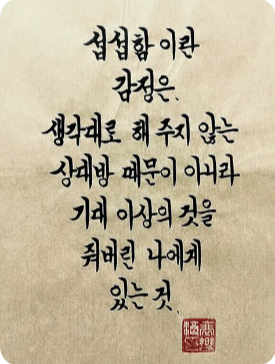 섭섭함 이란
감정은.
생각대로 해 주지 않는
상대방 때문이 아니라
기대 이상의 것을
줘버린 나에게
있는 것.